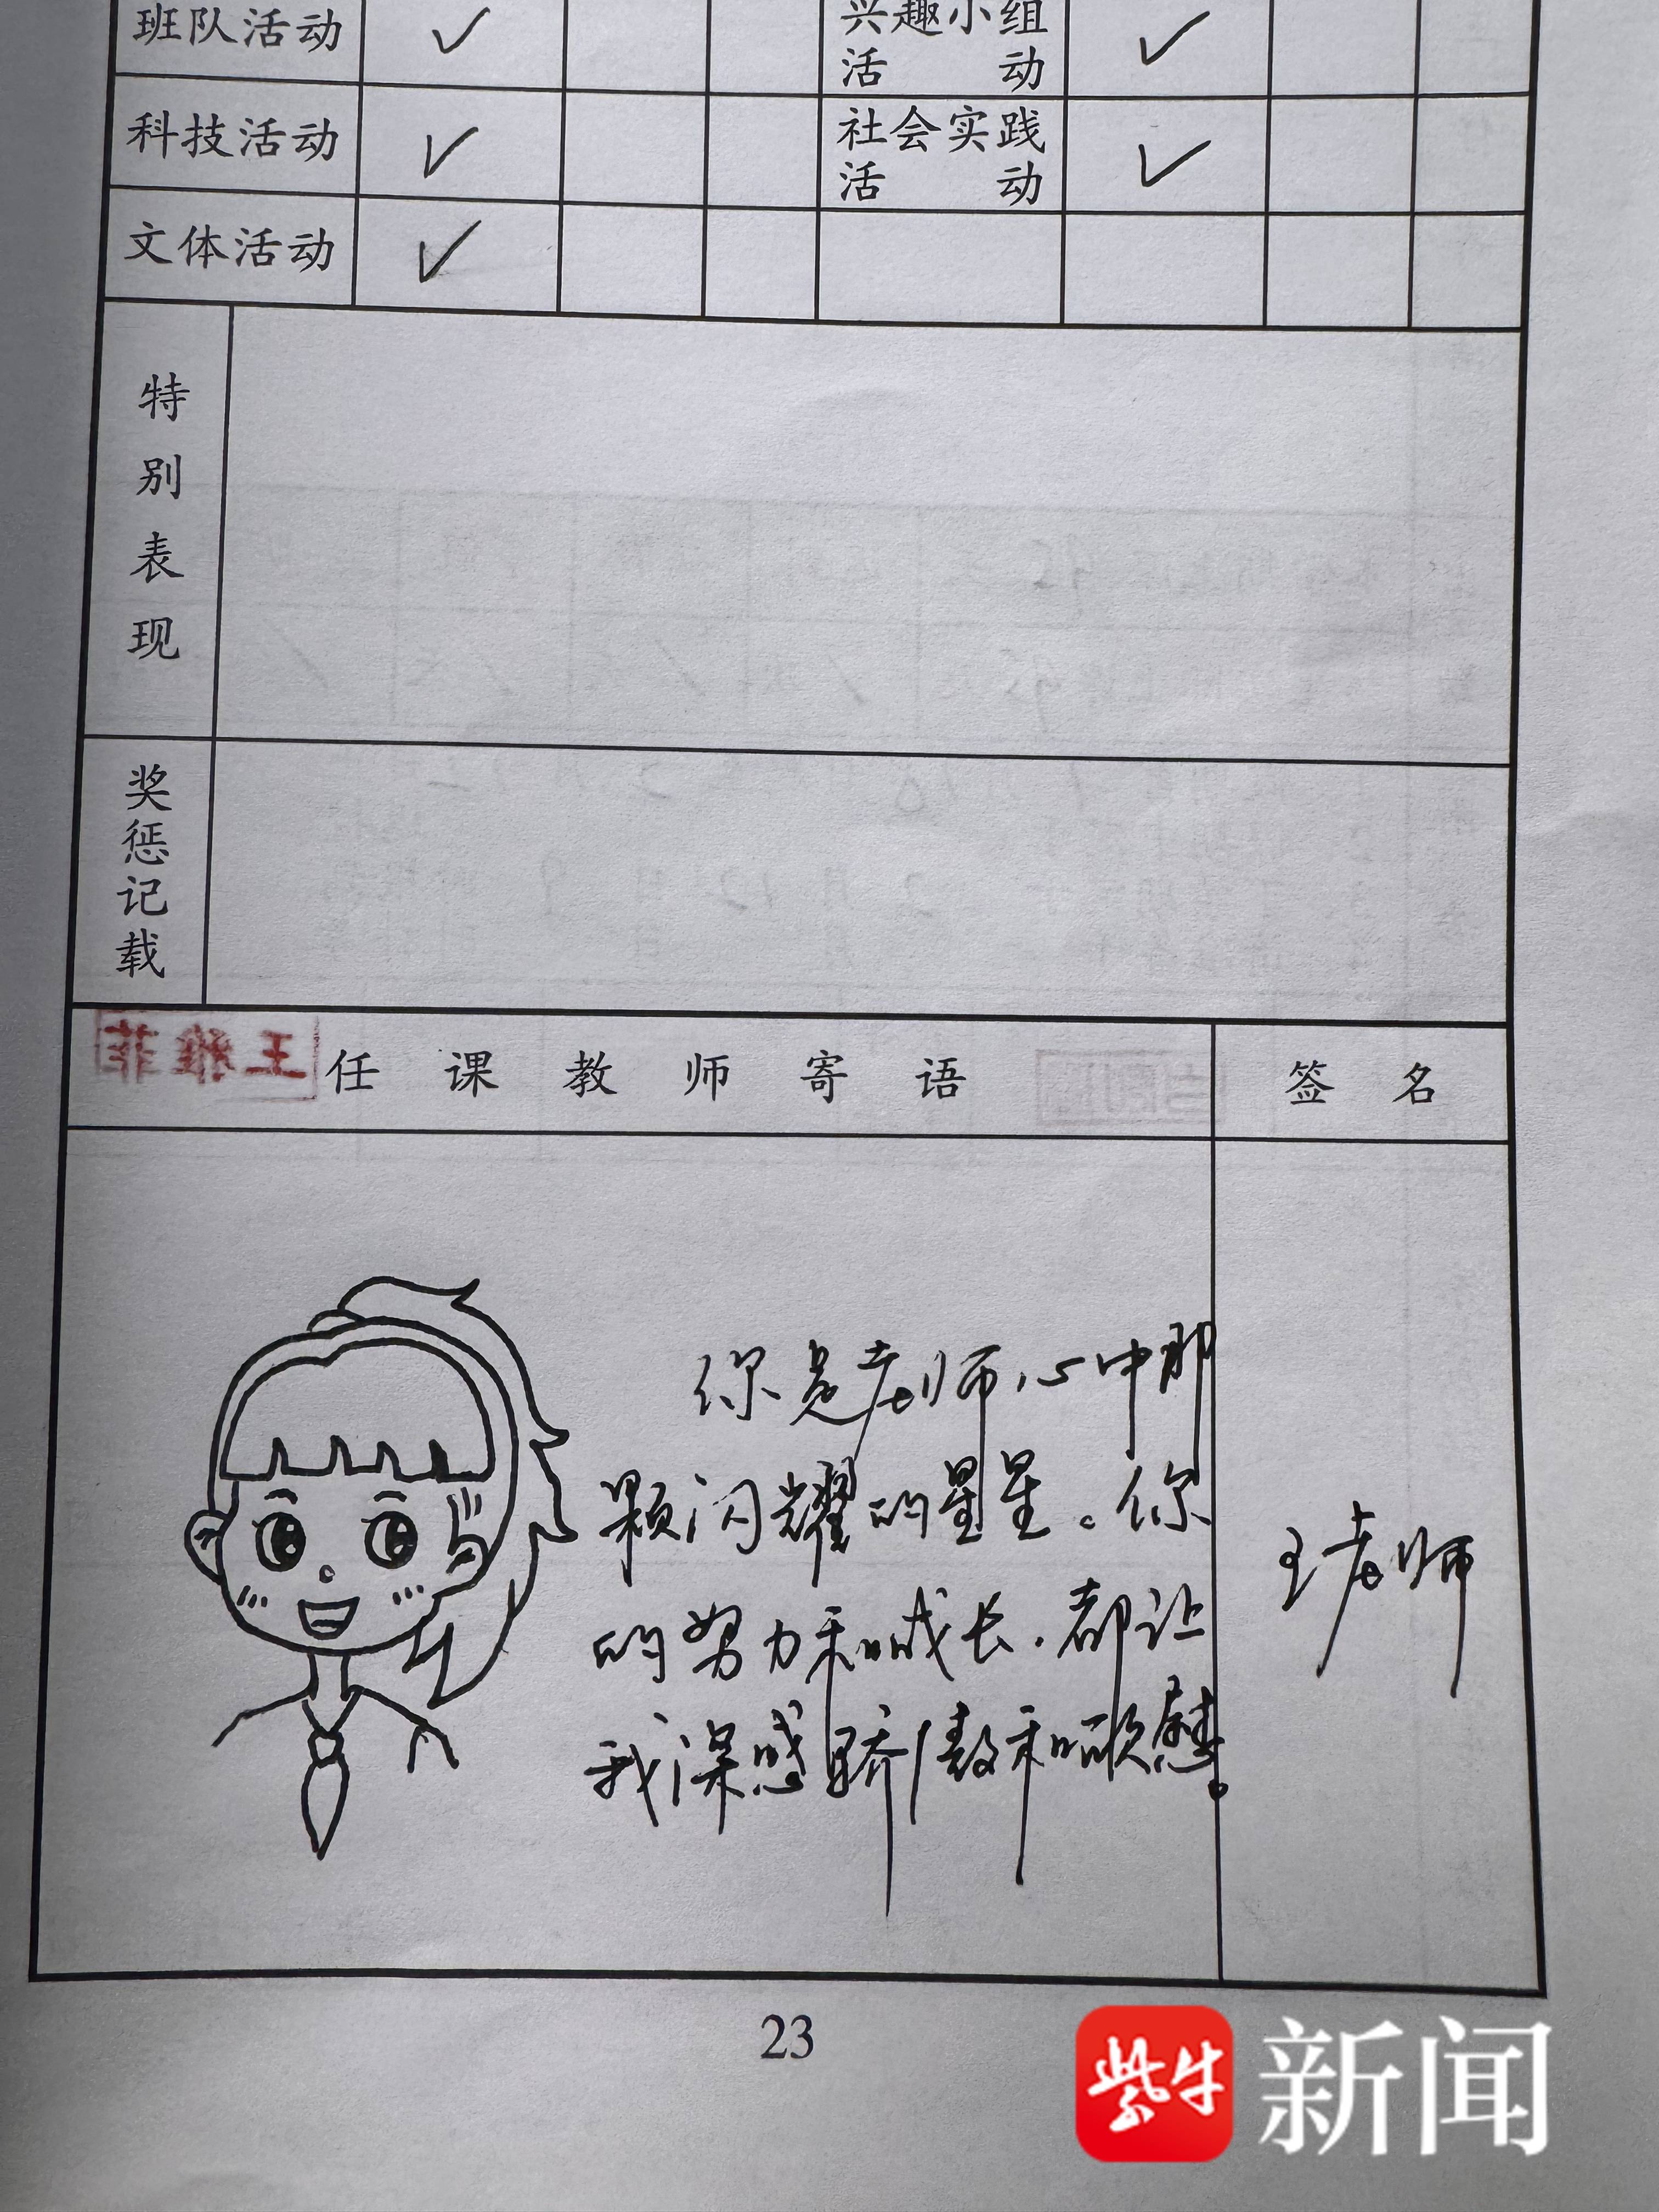 班队活动 ✓ 兴趣小组活动 ✓
科技活动 ✓ 社会实践活动 ✓
文体活动 ✓
特别表现
奖惩记载
任课教师寄语 签名
你是老师心中那
颗闪耀的星星。你
的努力和成长,都让
我深感骄傲和欣慰。
王老师
23
紫牛新闻